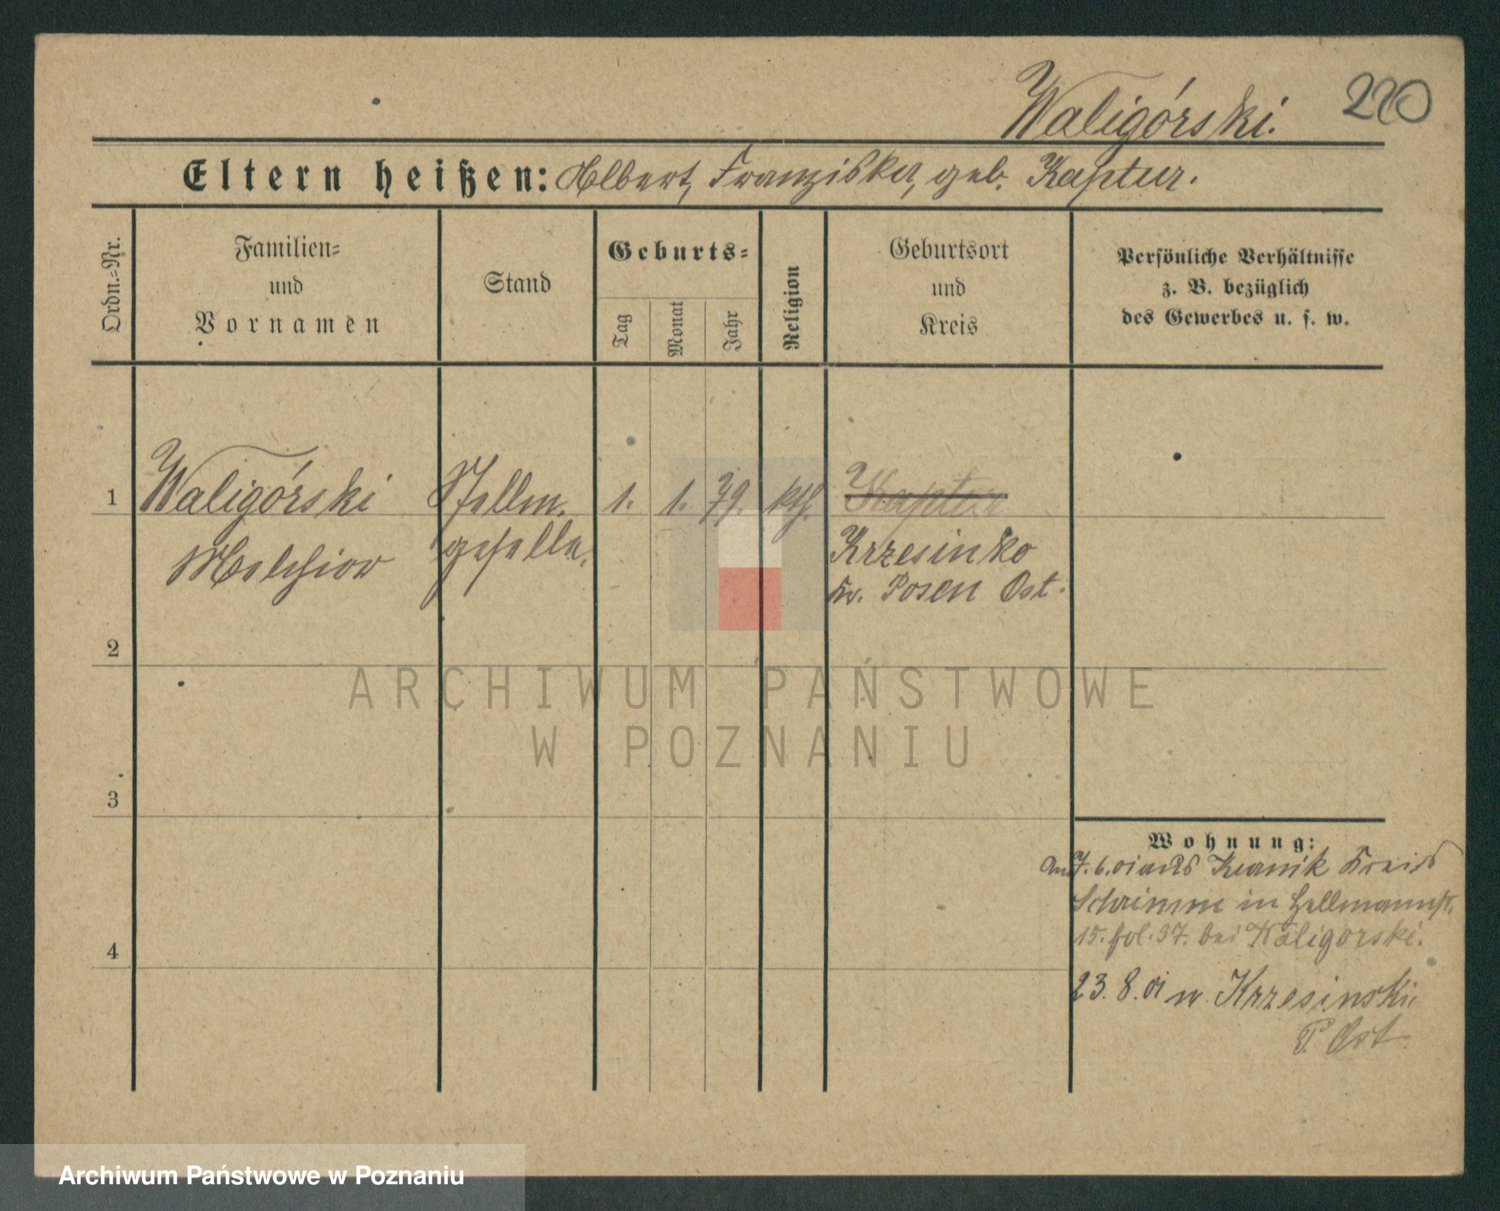 Waligórski.
220
Eltern heißen: Albert, Franziska, geb. Kaptur.
Ordn.-Nr.
Familien-
und
Vornamen
Stand
Geburts-
Tag
Monat
Jahr
Religion
Geburtsort
und
Kreis
Persönliche Verhältnisse
z. B. bezüglich
des Gewerbes u. s. w.
1
Waligórski
Melchior
Stellm.
geselle.
1. 1. 79. kth.
Kaptur
Krzesinko
Kr. Posen Ost.
2
3
4
Wohnung:
Am 7.6.01 aus Kurnik Kreis
Schrimm in Hellmannstr.
15. fol. 37. bei Waligorski.
23. 8. 01 n. Krzesinki
P. Ost
ARCHIWUM PAŃSTWOWE
W POZNANIU
Archiwum Państwowe w Poznaniu